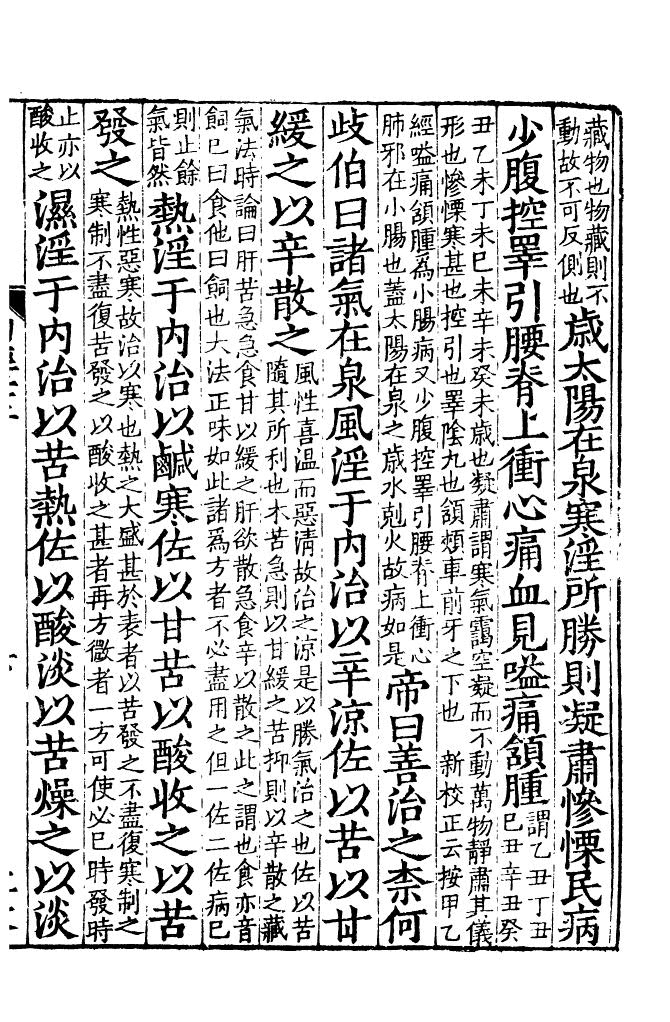 藏物也物藏則不
動故不可反側也
歲太陽在泉寒淫所勝則凝肅慘慄民病
少腹控睪引腰脊上衝心痛血見嗌痛頷腫
謂乙丑丁丑
己丑辛丑癸
丑乙未丁未巳未辛未癸未歲也凝肅謂寒氣靄空凝而不動萬物靜肅其儀
形也慘慄寒甚也控引也睪陰丸也頷頰車前牙之下也 新校正云按甲乙
經嗌痛頷腫爲小腸病又少腹控睪引腰脊上衝心
肺邪在小腸也蓋太陽在泉之歲水剋火故病如是
帝曰善治之柰何
歧伯曰諸氣在泉風淫于內治以辛涼佐以苦以甘
緩之以辛散之
風性喜溫而惡清故治之涼是以勝氣治之也佐以苦
隨其所利也木苦急則以甘緩之苦抑則以辛散之藏
氣法時論曰肝苦急急食甘以緩之肝欲散急食辛以散之此之謂也食亦音
飼巳曰食他曰飼也大法正味如此諸爲方者不必盡用之但一佐二佐病巳
則止餘
氣皆然
熱淫于內治以鹹寒佐以甘苦以酸收之以苦
發之
熱性惡寒故治以寒也熱之大盛甚於表者以苦發之不盡復寒制之
寒制不盡復苦發之以酸收之甚者再方微者一方可使必巳時發時
止亦以
酸收之
濕淫于內治以苦熱佐以酸淡以苦燥之以淡